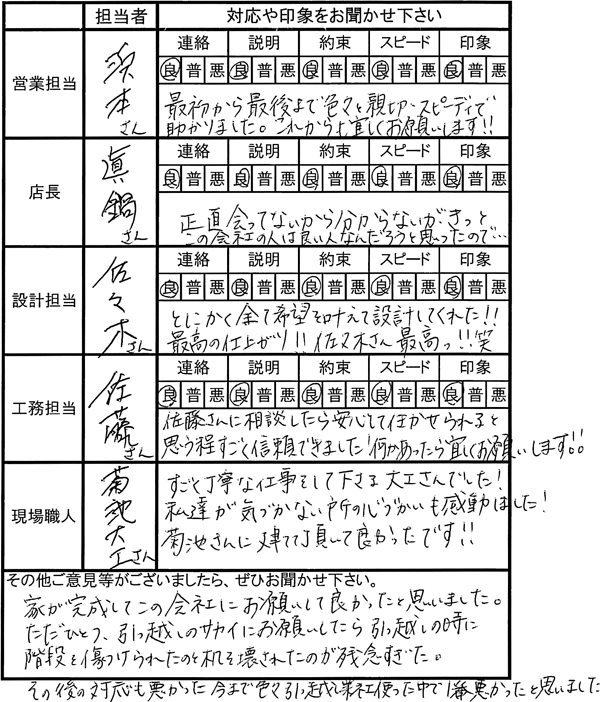 担当者 対応や印象をお聞かせ下さい
営業担当 須本さん
連絡 説明 約束 スピード 印象
良 普 悪 良 普 悪 良 普 悪 良 普 悪 良 普 悪
最初から最後まで色々と親切、スピーディで
助かりました。これからも宜しくお願いします!!
店長 真鍋さん
連絡 説明 約束 スピード 印象
良 普 悪 良 普 悪 良 普 悪 良 普 悪 良 普 悪
正直会ってないから分からないが、きっと
この会社の人は良い人なんだろうと思ったので…
設計担当 佐々木さん
連絡 説明 約束 スピード 印象
良 普 悪 良 普 悪 良 普 悪 良 普 悪 良 普 悪
とにかく全て希望を叶えて設計してくれた!!
最高の仕上がり!!佐々木さん最高っ!!笑
工務担当 佐藤さん
連絡 説明 約束 スピード 印象
良 普 悪 良 普 悪 良 普 悪 良 普 悪 良 普 悪
佐藤さんに相談したら安心して任かせられると
思う程すごく信頼できました!何かあったら宜しくお願いします!!
現場職人 菊池大工さん
すごく丁寧な仕事をして下さる大工さんでした!
私達が気づかない所の心づかいも感動しました!
菊池さんに建てて頂いて良かったです!!
その他ご意見等がございましたら、ぜひお聞かせ下さい。
家が完成してこの会社にお願いして良かったと思いました。
ただひとつ、引っ越しのサカイにお願いしたら引っ越しの時に
階段を傷つけられたのと机を壊されたのが残念すぎた。
その後の対応も悪かった 今まで色々引っ越し業社使った中で1番悪かったと思いました